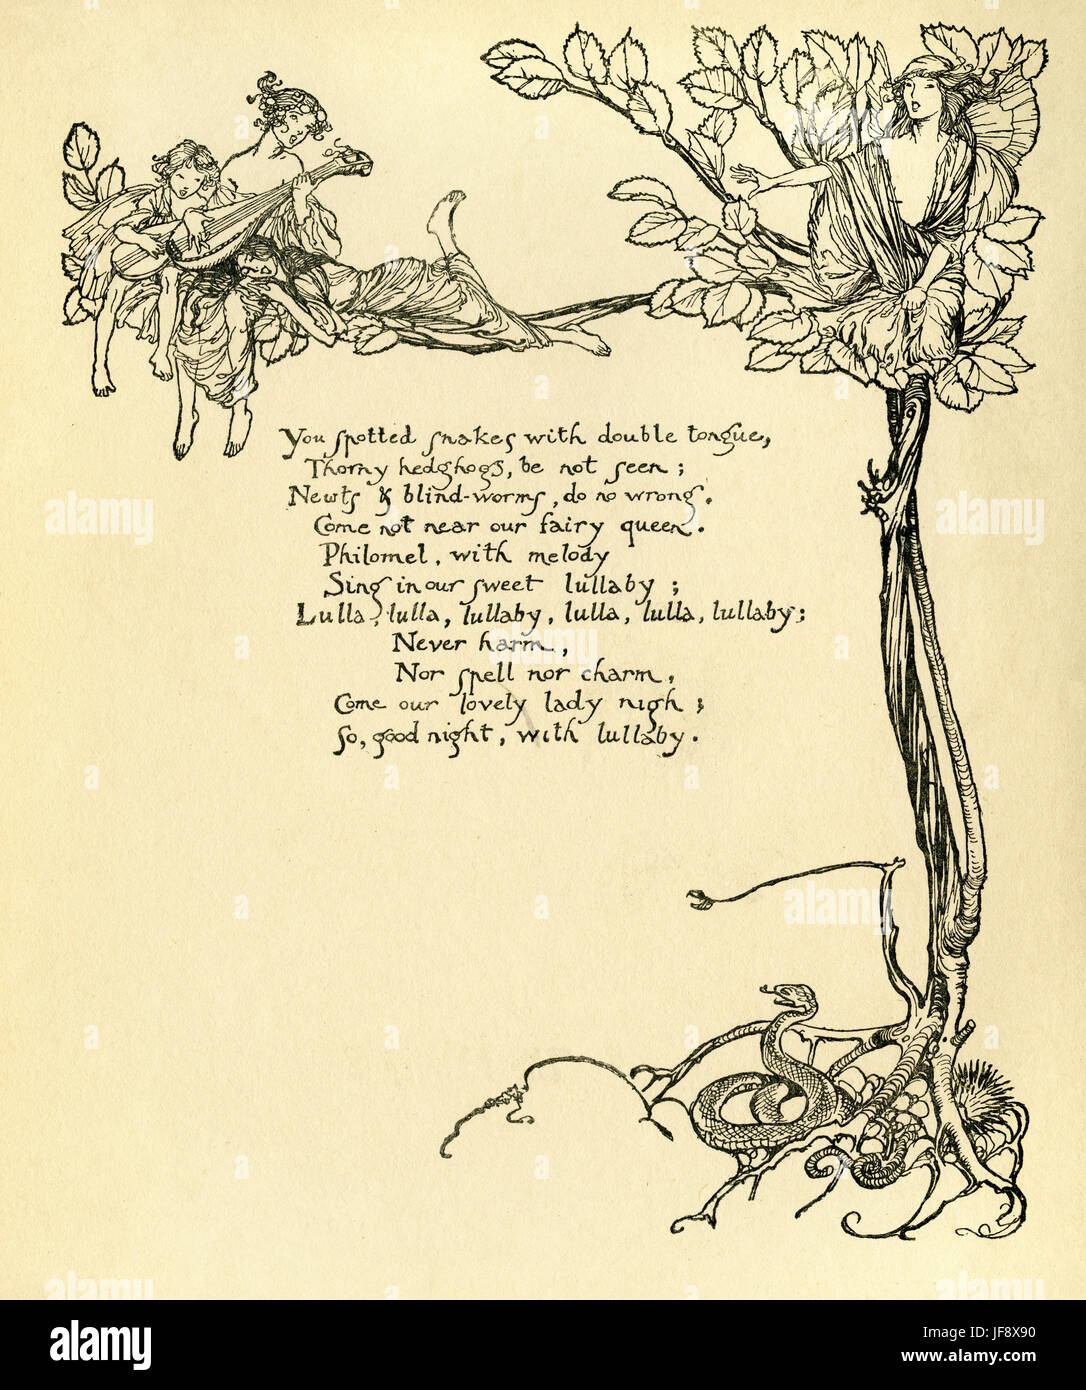 You spotted snakes with double tongue,
Thorny hedghogs, be not seen;
Newts & blind-worms, do no wrong.
Come not near our fairy queen.
Philomel, with melody
Sing in our sweet lullaby;
Lulla, lulla, lullaby, lulla, lulla, lullaby;
Never harm,
Nor spell nor charm,
Come our lovely lady nigh;
So, good night, with lullaby.
alamy stock photo
JF8X90
www.alamy.com